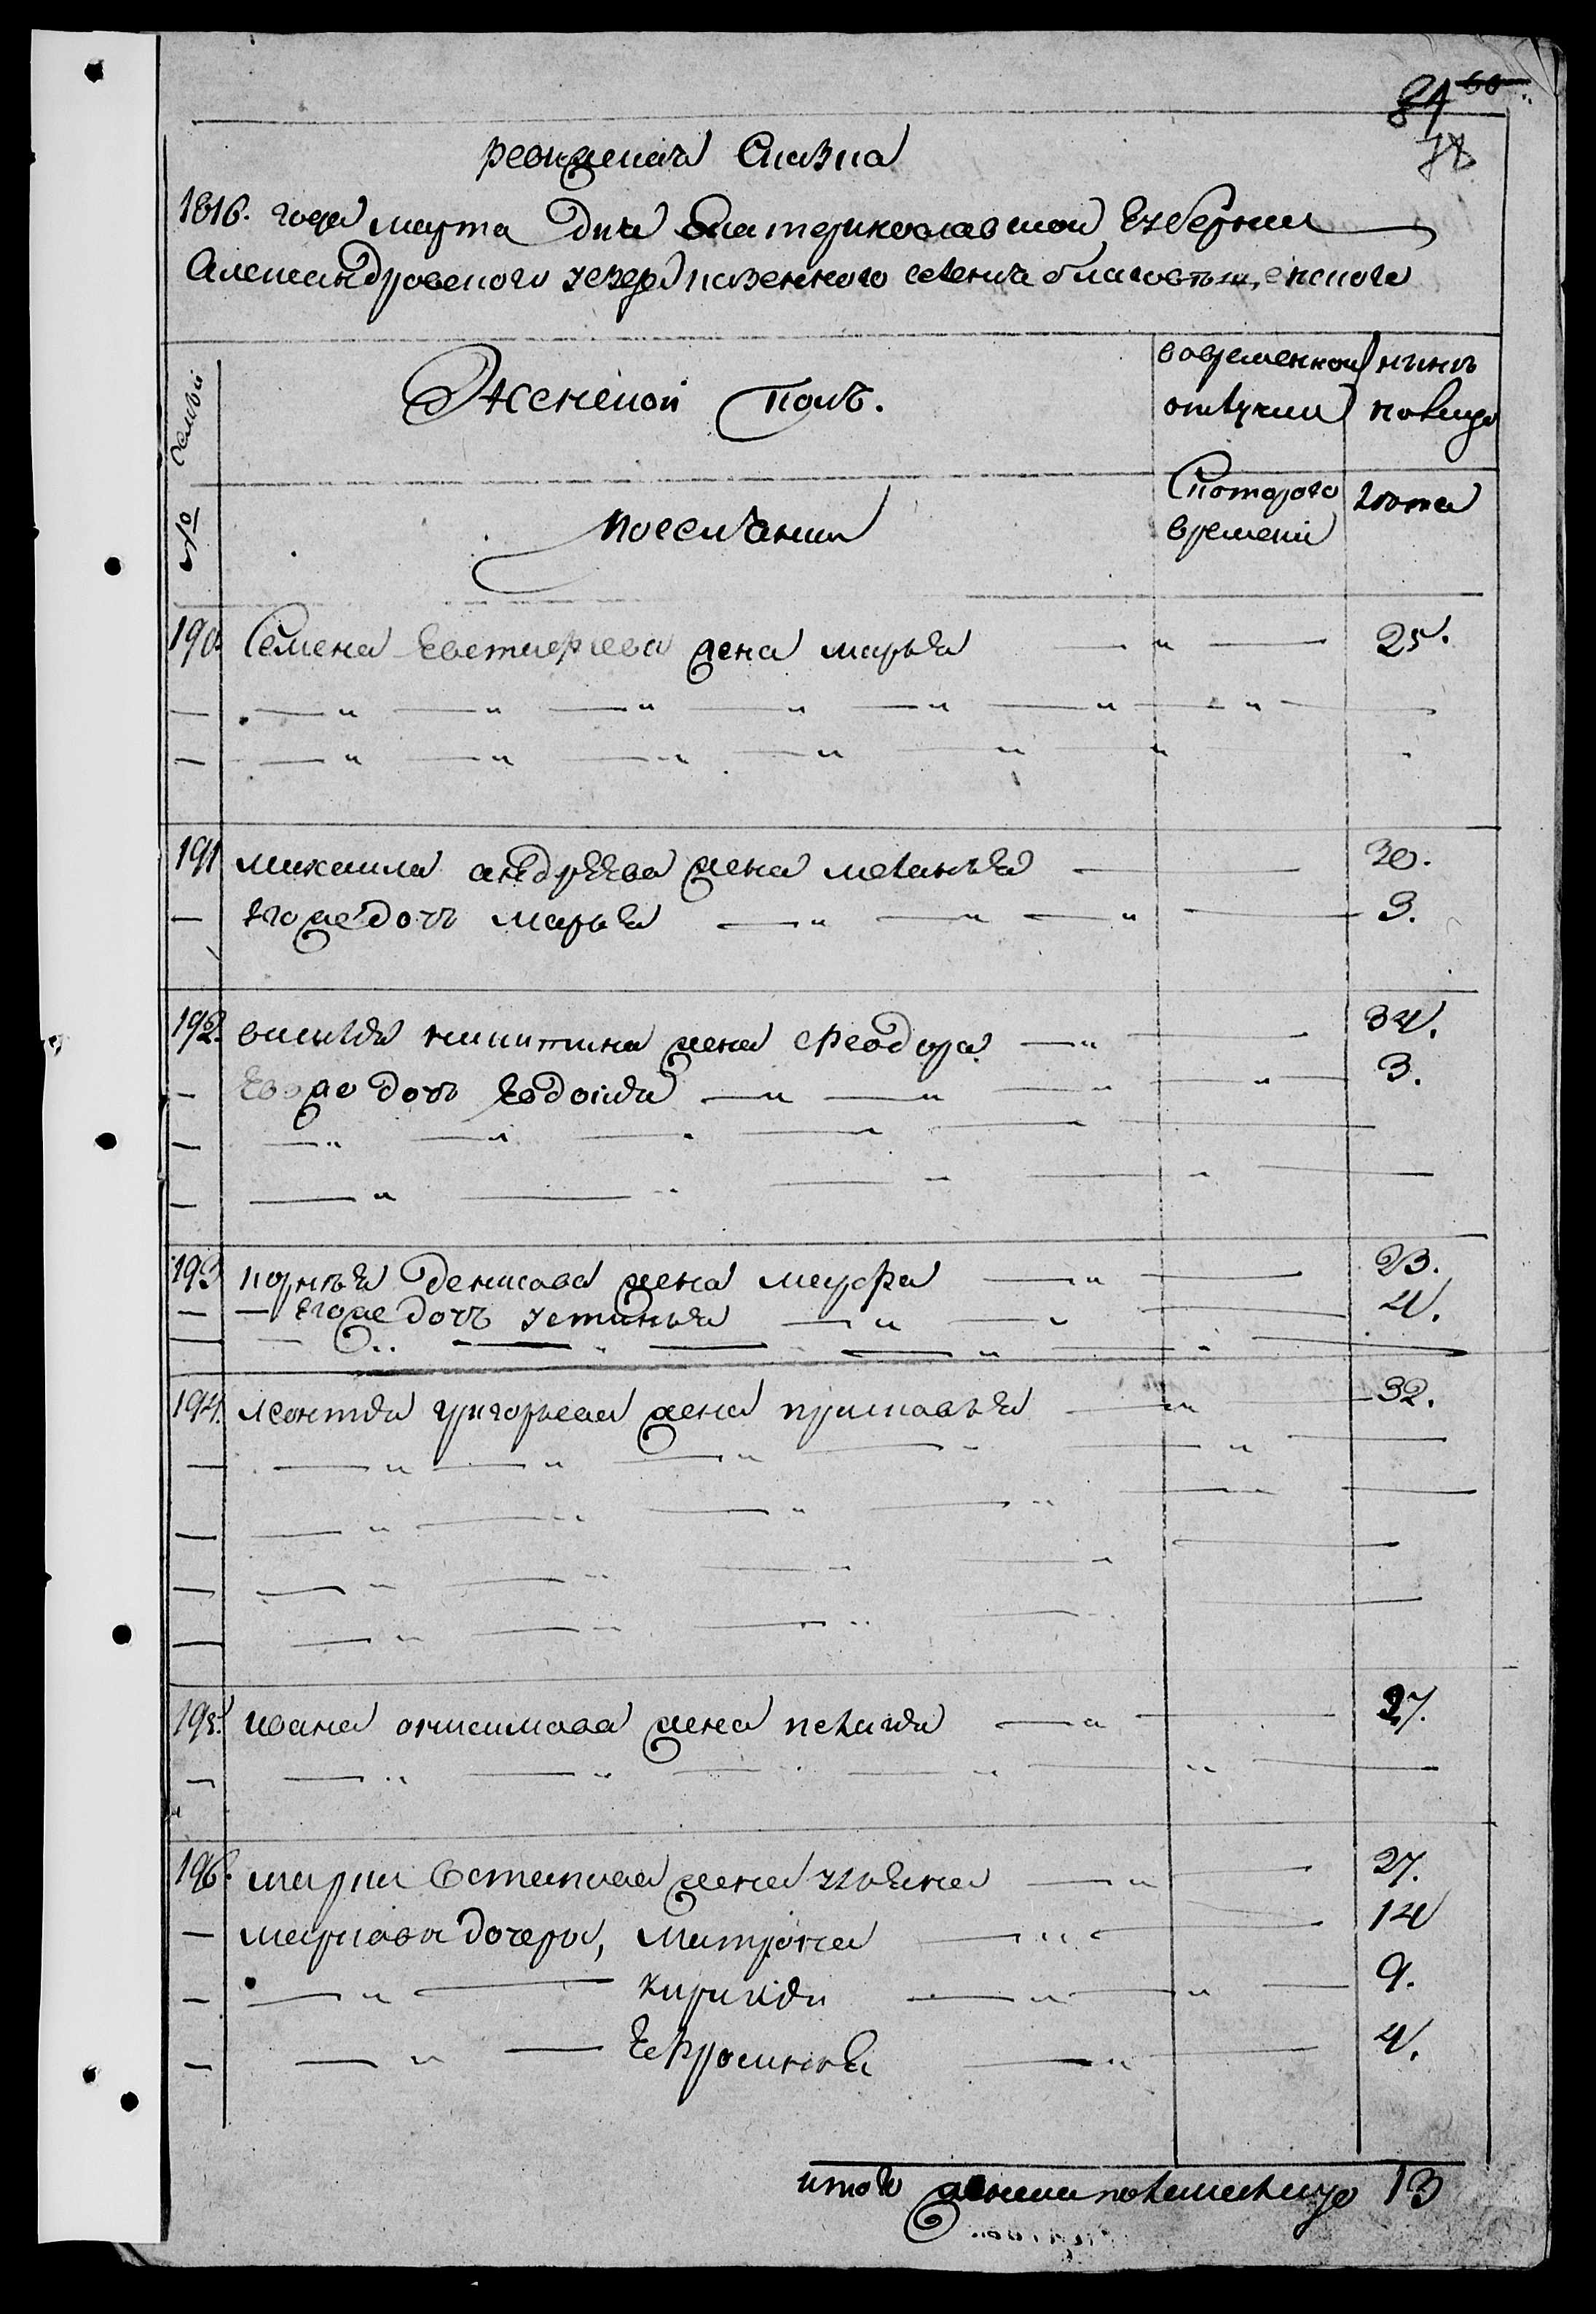 84 60
78
ревижская Сказка
1816. года марта дня екатеринославской Губернии
Александровского уезда казенного селения благовещенского
№ семьи
Женской полъ.
вовременной отлучки
нынѣ налицо
поселянки
Скоторого времени
лѣта
190. Семена Евстифеева жена марья — " — 25.
191 михаила андрѣева жена меланья — 30.
— Егоже дочь марья — " — " — " — 3.
192. василия никитина жена феодора — " — 34.
— Егоже дочь Евдокия — " — " — " — " — 3.
193 корнѣя денисова жена марфа — " — 23.
— Егоже дочь устинья — " — " — 4.
194. леонтия григорьева жена прасковья — " — 32.
195. ивана онисимова жена пелагия — " — 27.
196. марка Остапова жена ульяна — " — 27.
— маркова дочери, матрона — " — 14
— " — кирилия — " — " — 9.
— " — Ефросинья — " — 4.
итого женска пола налицо 13